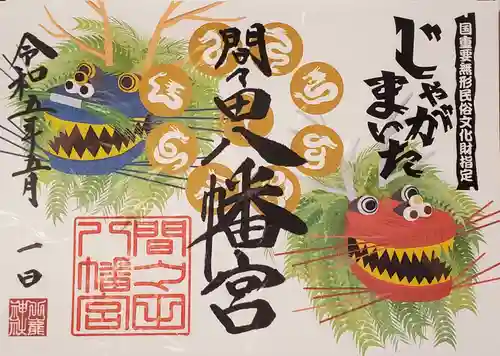 国重要無形民俗文化財指定
じゃがまいた
間々田八幡宮
令和五年五月
一日
間々田
八幡宮